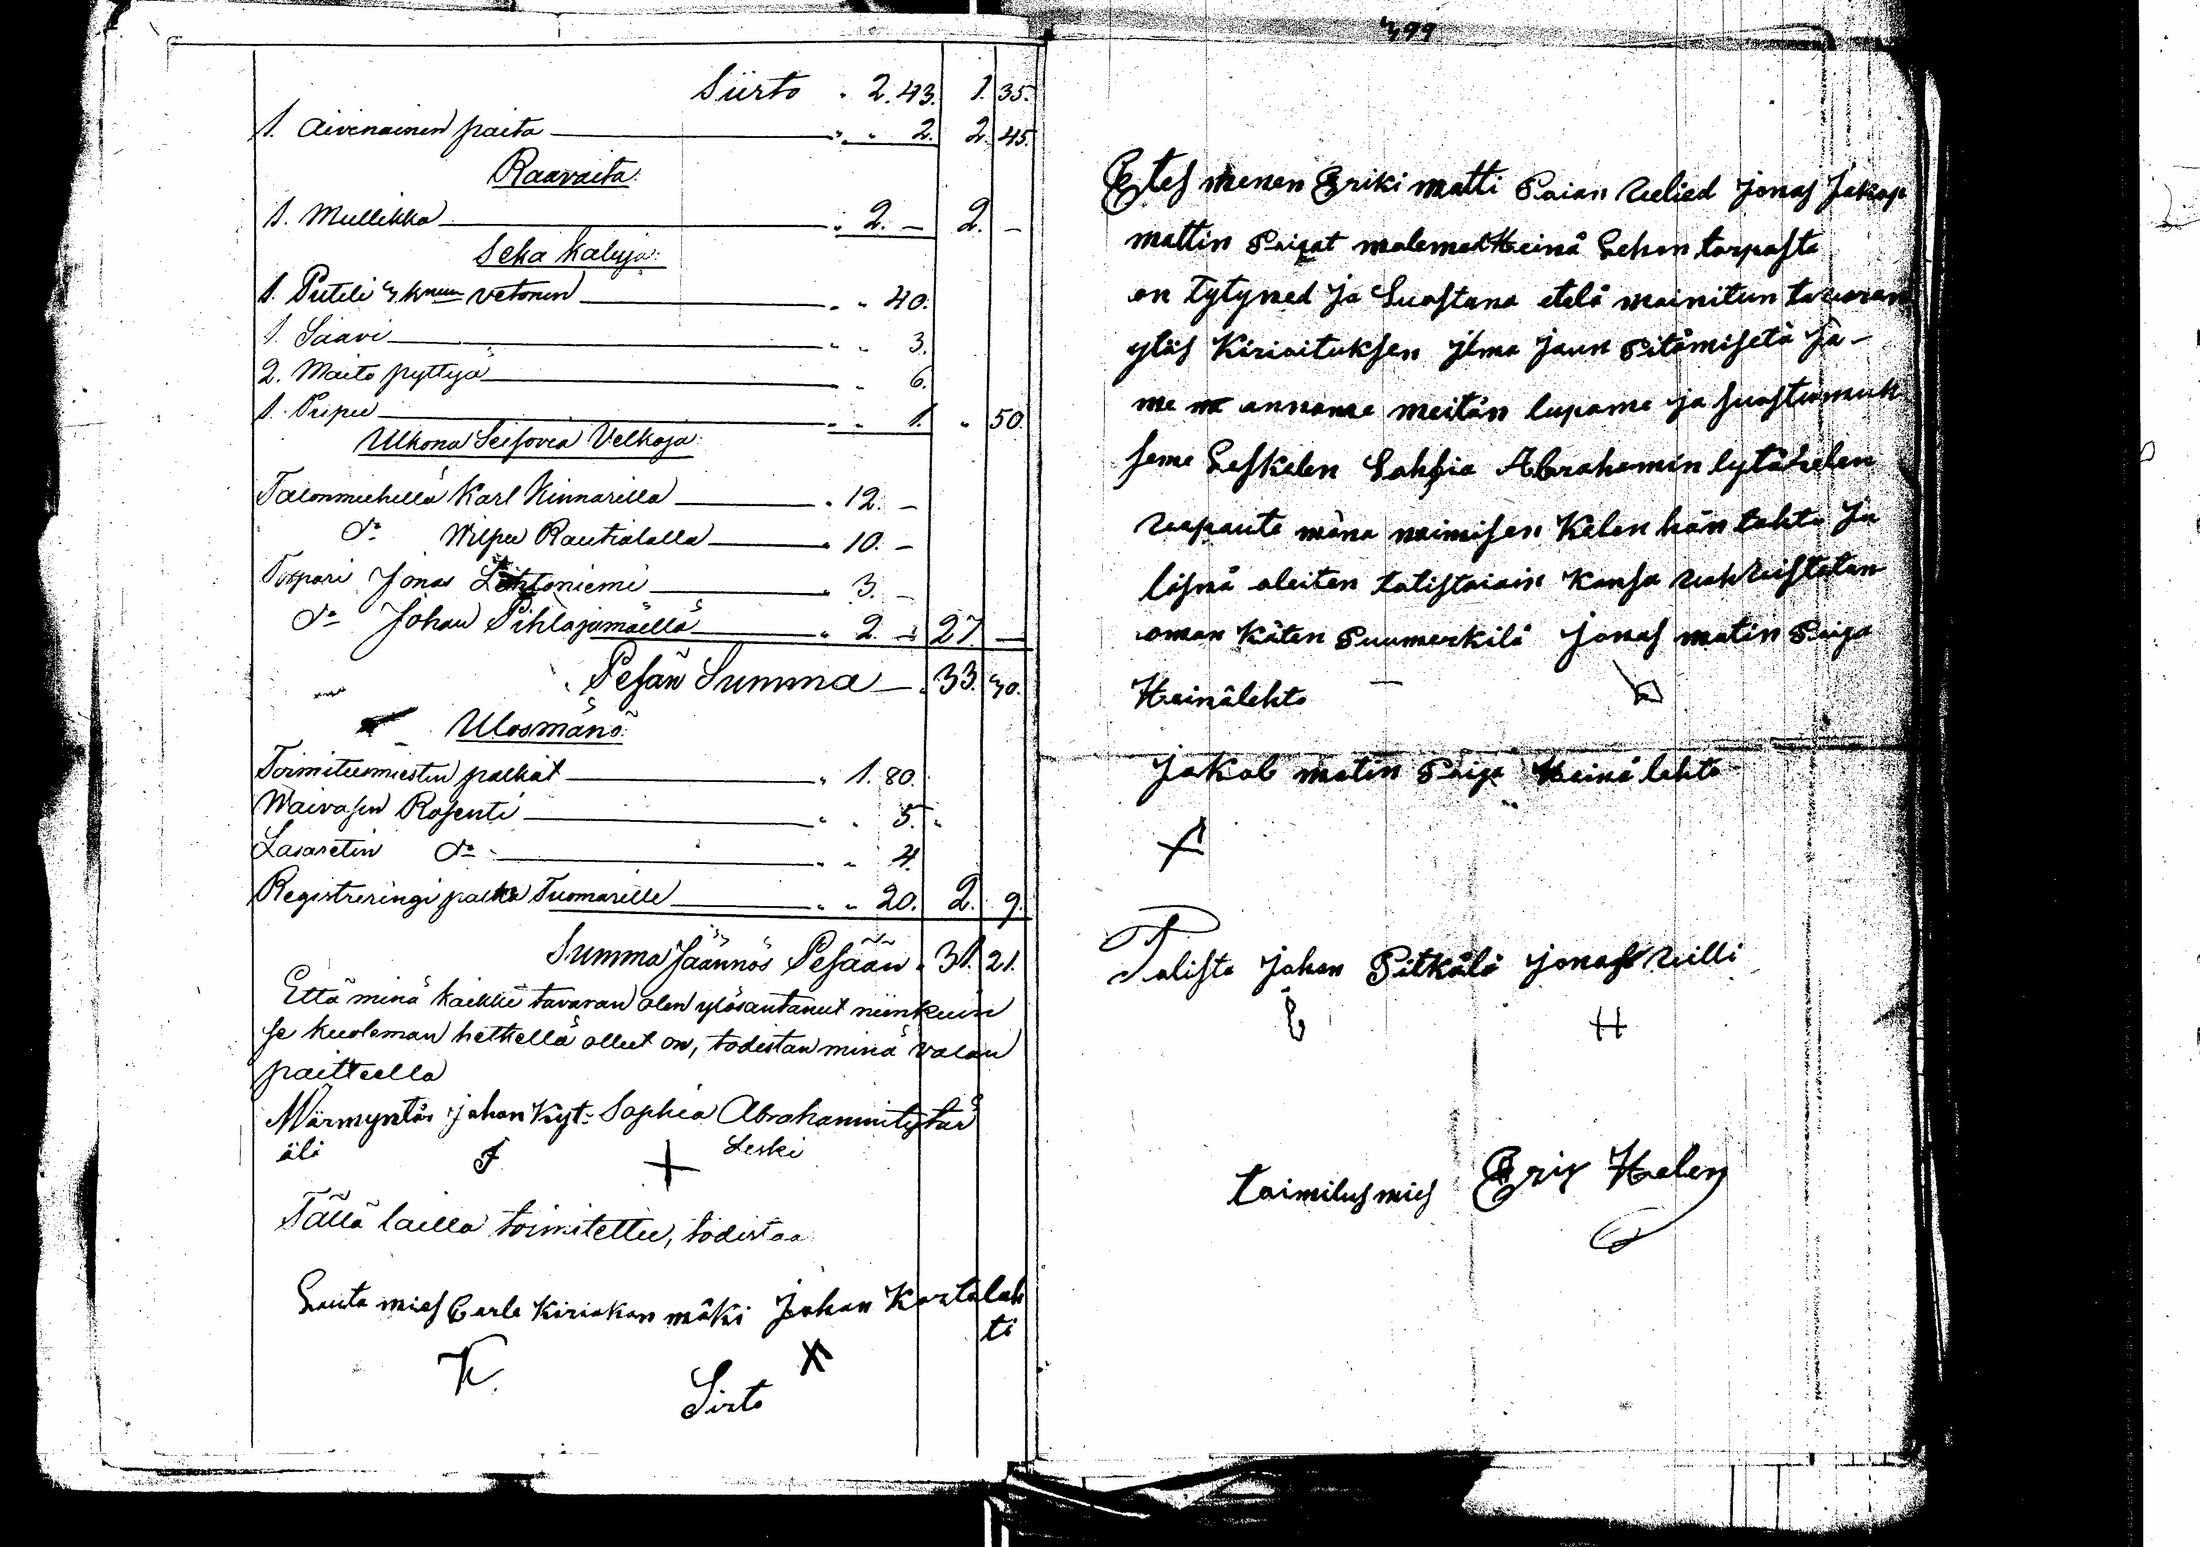 Siirto " 2. 43. 1. 35.
1. Aivinainen paita " " 2. 2. 45.
Raavaita:
1. Mullikka " 2. — 2. —
Seka kaluja:
1. Puteli 3 knun vetonen " " 40.
1. Saavi " " 3.
2. Maito pyttyä " " 6.
1. Pripu " " 1. " 50.
Ulkona Seisovia Velkoja:
Talonmiehellä Karl Kinnarilla " 12. —
do Wilpu Rautialalla " 10. —
Torpari Jonas Lehtoniemi " 3. —
do Johan Pihlajamäellä " 2. — 27. —
Pesän Summa — " 33. 30.
Ulosmänö:
Toimitusmiesten palkat " 1. 80.
Waivasen Rosenti " " 5. "
Lasaretin do " " 4.
Registreringi palka Tuomarille " " 20. 2. 9.
Summa Jäännös Pesään " 31. 21.
Että minä kaikki tavaran olen ylösantanut niinkuin
se kuoleman hetkellä ollut on, todistan minä valan
paitteella
Mörmyntär johan Kyt- Sophia Abrahamintytär
älä Leski
Tällä lailla toimitettu, todistaa
Lauta mies Carle Kiriakan mäki Johan Kartalah
ti
K.
Sirto
499
Etes menen Eriki matti Paian velied Jonas Jakop
mattin Poigat molemad Heinä Lehon torpasta
on tytyned ja Suostuna etelä mainitun tavaran
ylös Kirioituksen jlma jaun Pitämisetä Ja-
me annamme meitän lupame ja suostumuk
seme Leskelen Sohfia Abrahamin tytärelen
vapaute mäna naimisen Kelen hän tahto Ja
läsnä oleiten totistaiain Kansa vahvistetan
oman Käten Puumerkilä Jonas matin Poiga
Heinälehto
Jakob matin Poiga Heinä lehto
Talista Johan Pitkälä jonas villi
H
toimitus mies Eriy Helen